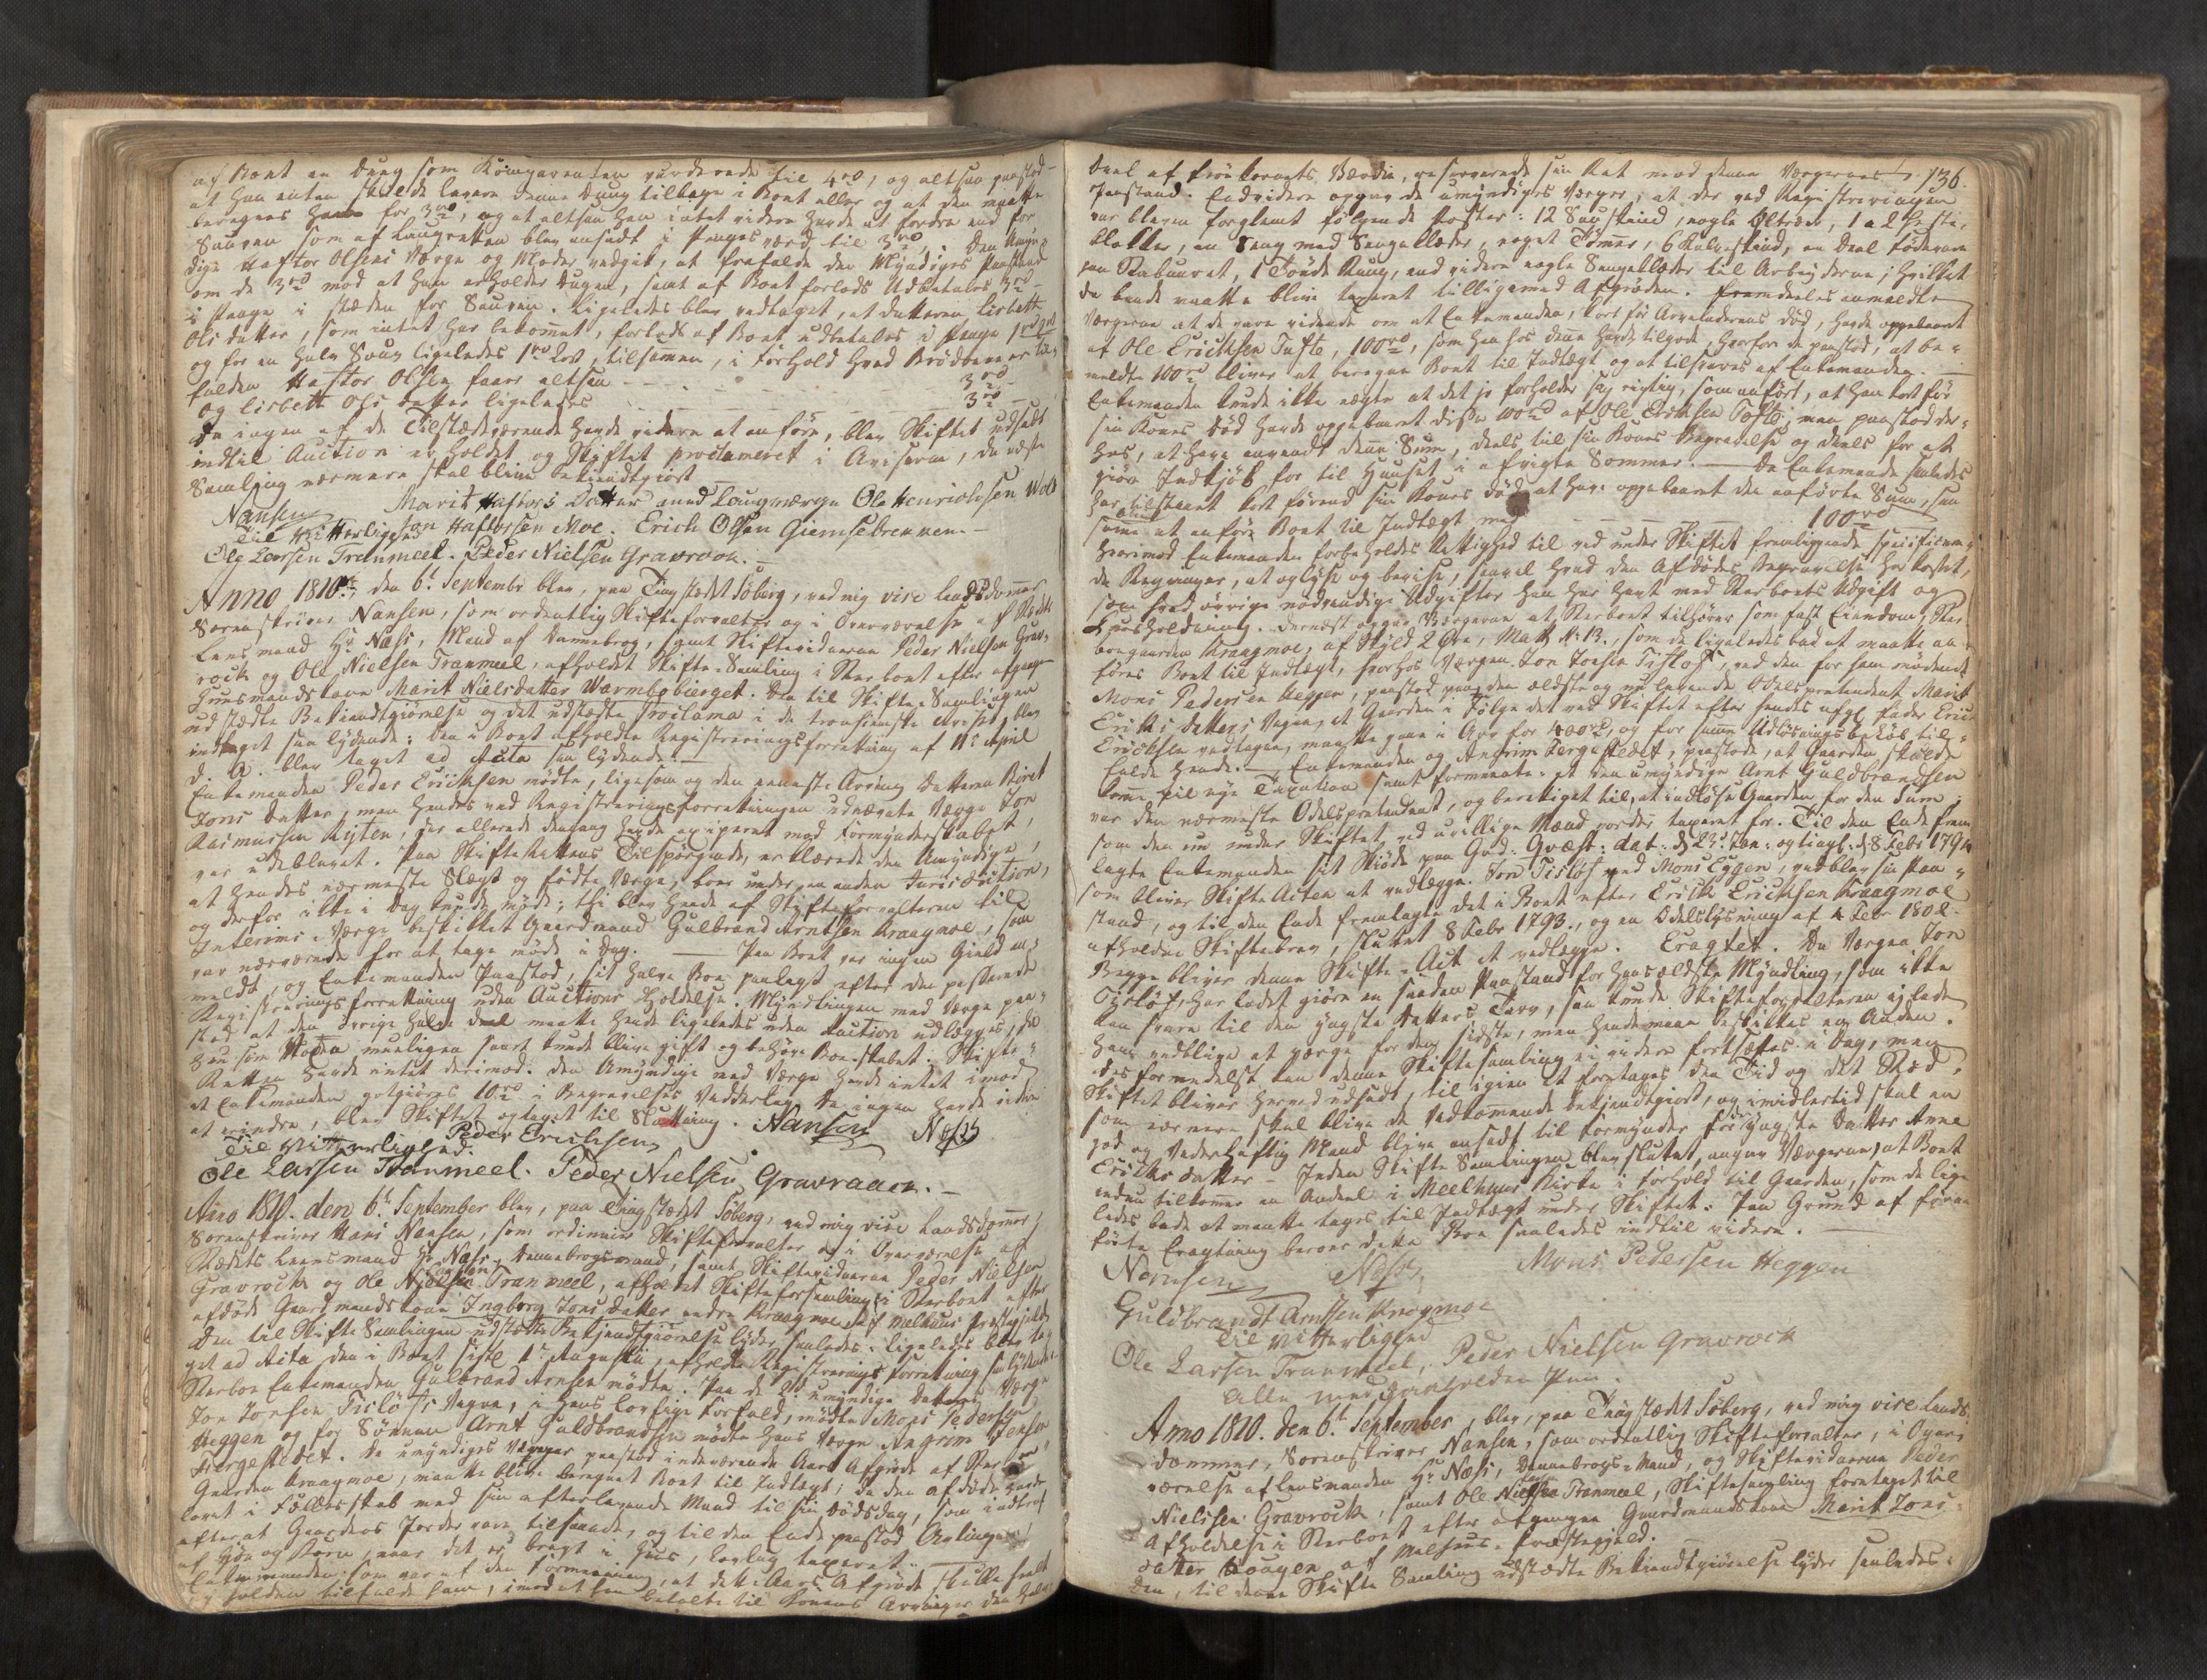 af Boet en Dung som Kiøingarenten vurderede til 4 rd, og altsaa paastod
at han enten skulde levere denne Dung tilbage i Boet eller og at den maatte
beregnes ham for 3 rd, og at altsaa han intet videre havde at fordre end for
Sauen som af Laugretten blev ansadt i Penges værd til 3 rd. Den Umyn-
dige Haftor Olsens Værge og Moder vedgik, at frafalde den Myndiges Paastand
om de 3 rd mod at han erholder Dugen, samt af Boet forlods Udbetales 3 rd
i Penge i stæden for Sauen. Ligeledes blev vedtaget, at Datteren Lisbeth
Ols datter, som intet har bekommet, forlods af Boet udbetales i Penge
og for en halv Soug ligeledes tilsammen, i Forhold hvad Brødrene er til-
falden Haftor Olsen faaer altsaa - - - 3 rd
og Lisbett Ols datter ligeledes - - - 3 rd
Da ingen af de Tilstædeværende havde videre at anføre, blev Skiftet udsadt
indtil Auction er holdet og Skiftet proclameret i Aviserne, da næste
Samling nærmere skal blive bekiendtgiort
Nansen Marit Haftors Datter med Laugværge Ole Henrichsen Wold
Til Vitterlighed Jon Haftorsen Moe. Erich Olsen Giemsebrennen.
Ole Larsen Tranmeel. Peder Nielsen Gravrook.
Anno 1810 den 6t Septembr blev, paa Tingstædet Søberg, ved mig vice Landsdommer
Sorenskriver Nansen, som ordentlig Skifteforvalter og i Overværelse af Stædets
Lensmand Hr Næss, Mand af Dannebrog, samt Skiftevidnerne Peder Nielsen Grav-
rock og Ole Nielsen Tranmeel, afholdet Skifte-Samling i Sterboet efter afgangne
Huusmandskone Marit Nielsdatter Warmbobierget. Den til Skifte-Samlingen
udstædte Bekiendtgiørelse og det udstædte Proclama i de tronhiemske Aviser, blev
indtaget saa lydende: Den i Boet afholdte Registreringsforretning af 11t April
d. A. blev taget ad Acta saa lydende:
Enkemanden Peder Erichsen mødte, ligesom og den eeneste Arving Datteren Børet
Jons datter, men hendes ved Registreringsforretningen udnævnte Værge Jon
Rasmussen Ryten, der allerede dengang havde exiperet mod Formynderskabet,
var udebleved. Paa Skifterettens Tilspørgende, erklærede den Umyndige,
at hendes nærmeste Slægt og fødte Værge, boer under en anden Jurisdiction,
og derfor ikke i Dag kunde møde; thi blev hende af Skifteforvalteren til
Interims-Værge beskikket Gaardmand Gulbrand Arntsen Kraagmoe, som
var nærværende for at tage møde i Dag. — Paa Boet var ingen Gield an-
meldt, og Enkemanden Paastod, sit halve Boe panlagt efter den passerede
Registreringsforretning uden Auctions Holdelse. Myndlingen med Værge paa-
stod at den øvrige halve Deel maatte hende ligeledes uden Auction udlægges, da
hun som Moden mueligen snart kunde blive gift og behøve Boeskabet. Skifte-
Retten havde intet derimod. Den Umyndige med Værge havde intet imod
at Enkemanden godtgiøres 10 rd i Begravelses Vederlag. Da ingen havde videre
at erindre, blev Skiftet optaget til Slutning. Nansen Næss
Til Vitterlighed. Peder Erichsen
Ole Larsen Tranmeel. Peder Nielsen Gravraaen.
Anno 1810. den 6t September blev, paa Tingstædet Søberg, ved mig vice Landsdommer,
Sorenskriver Hans Nansen, som ordinair Skifteforvalter og i Overværelse af
Stædets Leensmand Hr Næss, Dannebrogsmand, samt Skiftevidnerne Peder Nielsen
Gravrock og Ole Larsen Tranmeel, afholdt Skifteforsamling i Sterboet efter
afdøde Gaardmandskone Ingborg Jons datter nedre Kraagmoe af Melhuus Præstegield
Den til Skifte Samlingen udstædte Bekjendtgiørelse lyder saaledes. Ligeledes blev tag-
get ad Acta den i Boet sistl 1t Augusti, afholdte Registrerings Forretning saa lydende
Sterboe Enkemanden Gulbrand Arnsen mødte. Paa de 2de umyndige Døttres Værge
Jon Jonsen Tisløfs Vegne, i hans lovlige Forfald, mødte Mons Pedersen
Heggen og for Sønnen Arnt Guldbrandsen mødte hans Værge Angrim Jensen
Fergestedet. De umyndiges Værger paastod indeværende Aars Afgrøde af Ster-
Gaarden Kraagmoe, maatte blive beregnet Boet til Indtægt; da den afdøde havde
levet i Fælledskab med sin efterlevende Mand til sin Dødsdag, som indtraf
efterat Gaardens Jorder var tilsaaede, og til den Ende paastod Avlingen
af Høe og Korn, naar det er bragt i Huus, lovlig taxeret.
Enkemanden, som var af den Formeening, at dette Aars Afgrøde skulle heelt
og holden tilfalde ham, imod at han betalte til Konens Arvinger den halve
136.
Deel af frøe Kornets Værdie, reserverede sin Ret mod denne Værgernes
Paastand. Endvidere opgav de umyndiges Værger, at der ved Registreringen
var bleven forglemt følgende Poster: 12 Saustind, nogle Øltrøer, 1 a 2 Heste-
klokker, en Seng med Sengeklæder, noget Tømmer, 6 Kalveskind, en Deel Fødevare
paa Stabuuret, 1 Tønde Rug, end videre nogle Sengeklæder til Arbeyderne; hvilket
de bende maatte blive taxeret tilligemed Afgrøden. Fremdeeles anmeldte
Værgerne at de vare vidende om at Enkemanden, kort før Arveladerens død, havde oppebaaret
af Ole Erichsen Tufte, 100 rd, som han hos denne havde tilgode, hvorfore de paastod, at be-
meldte 100 rd bliver at beregne Boet til Indtægt og at tilsvares af Enkemanden. —
Enkemanden kunde ikke nægte at det jo forholder sig rigtig, som anført, at han kort før
sin Kones død havde oppebaaret disse 100 rd af Ole Erichsen Tofte, men paastod der-
hos, at have anvendt denne Sum, deels til sin Kones Begravelse og deels for at
giøre Indkjøb for til Huuset i afvigte Sommer. — Da Enkemanden saaledes
har tilstaaet kort førend sin Kones død at have oppebaaret den anførte Sum, saa
komme at anføre Boet til Indtægt med - - - 100 rd
hvorimod Enkemanden forbeholdes Rettighed til ved under Skiftet fremliggende specificere-
de Regninger, at oplyse og bevise, saavel hvad den Afdødes Begravelse har kostet,
som hvad øvrige nødvendige Udgifter han har havt med Sterboets Udgift og
Huusholdning. Dernæst opgav Værgerne at Sterboet tilhører som fast Eiendom, Ster-
boegaarden Kraagmoe, af Skyld 2 Øre, Matr. No 13., som de ligeledes bad at maatte an-
føres Boet til Indtægt, hvorhos Værgen Jon Jonsen Tisløf, ved den for ham mødende
Mons Pedersen Heggen, paastod paa den ældste og nu levende Odelspretendent Marit
Erichs datters Vegne, at Gaarden i Følge det ved Skiftet efter hendes afgl fader Erich
Erichsen vedtagen, maatte gaae i Arv for 400 rd, og for samme Udløsningsbeløb til-
falde hende. — Enkemanden og Angrim Fergestedet, paastode, at Gaarden skulde
komme til nye Taxation samt formeente, at den umyndige Arnt Guldbrandsen
var den nærmeste Odelspretendent, og berettiget til, at indløse Gaarden for den Sum
som den nu under Skiftet ved uvillige Mænd vorder taxeret for. Til den Ende frem-
lagte Enkemanden sit Skiøde paa Grd: Qvæst: dat: d 23 Jan: og tingl: d 8 Febr 1794
som bliver Skifte Acten at vedlegge. Jon Tisløf ved Mons Eggen, vedblev sin Paa-
stand, og til den Ende fremlagte det i Boet efter Erich Erichsen Kraagmoe
afholdne Skiftebrev, sluttet 8 Febr 1793., og en Odelslysning af 4 Febr 1802.
Begge bliver denne Skifte-Act at vedlegge. Eragtet. Da Værgen Jon
Tisløf har ladet giøre en saadan Paastand for hans ældste Myndling, som ikke
kan svare til den yngste Datters Tarv, saa kunde Skifteforvalteren ej lade
ham vedblive at værge for den sidste, men hende maae beskikkes en Anden.
desformedelst kan denne Skiftesamling ei videre fortsættes i Dag, men
Skiftet bliver herved udsadt, til igien at foretages den Tid og det Sted,
som nærmere skal blive de Vedkommende bekjendtgiort, og imidlertid skal en
god og Vederhæftig Mand blive ansadt til Formynder for yngste Datter Anne
Erichs datter — Inden Skifte Samlingen blev sluttet, angav Værgerne, at Boet
endnu tilkommer en Andeel i Meelhuus Kirke i Forhold til Gaarden, som de lige-
ledes bede at maatte tages til Indtægt under Skiftet. Paa Grund af foran-
førte Eragtning beroer dette Boe saaledes indtil videre. —
Nansen Næss Mons Pedersen Heggen
Guldbrandt Arntsen Kragmoe
Til Vitterlighed
Ole Larsen Tranmeel, Peder Nielsen Gravrock
Alle med paaholden Pen.
Anno 1810. den 6t September, blev, paa Tingstædet Søberg, ved mig vice Lands-
dommer, Sorenskriver Nansen, som ordentlig Skifteforvalter, i Over-
værelse af Lensmanden Hr Næss, Dannebrogs-Mand, og Skiftevidnerne Peder
Nielsen Gravrock, samt Ole Larsen Tranmeel, Skiftesamling foretaget til
Afholdelse i Sterboet efter afgangne Gaardmandskone Marit Jons-
datter Hougen af Melhuus-Præstegjeld.
Den, til denne Skifte Samling udstædte Bekiendtgiørelse lyder saaledes: